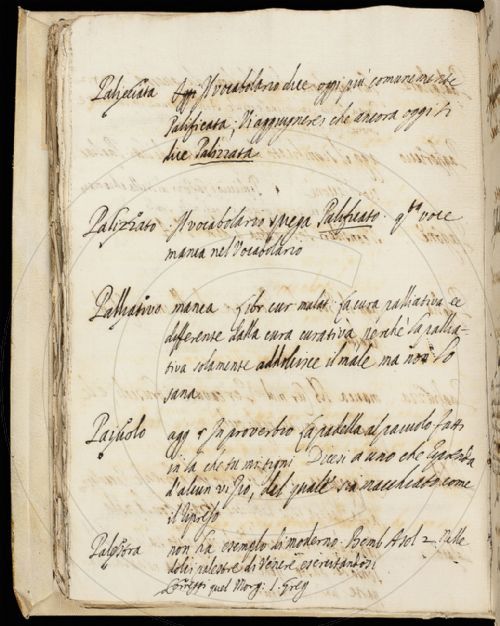 Palificata Il Vocabolario dice oggi più comunemente
Palificata; Vi aggiugnerei che ancora oggi si
dice Palizzata
Palizzato Il vocabolario spiega Palificato. q.ta voce
manca nel Vocabolario
Palliativo manca Libr cur malat. La cura palliativa ee
differente dalla cura curativa perchè la pallia-
tiva solamente addolcisce il male ma non lo
sana
Paiuolo In proverbio La padella al paiuolo fatti
in là che tu mi tigni Dicesi a uno che
d'alcun vizio, del quale sia macchiato come
il
Palestra non ha esempio di moderno. Bemb Asol 2 Nelle
dolci palestre di Venere esercitantosi